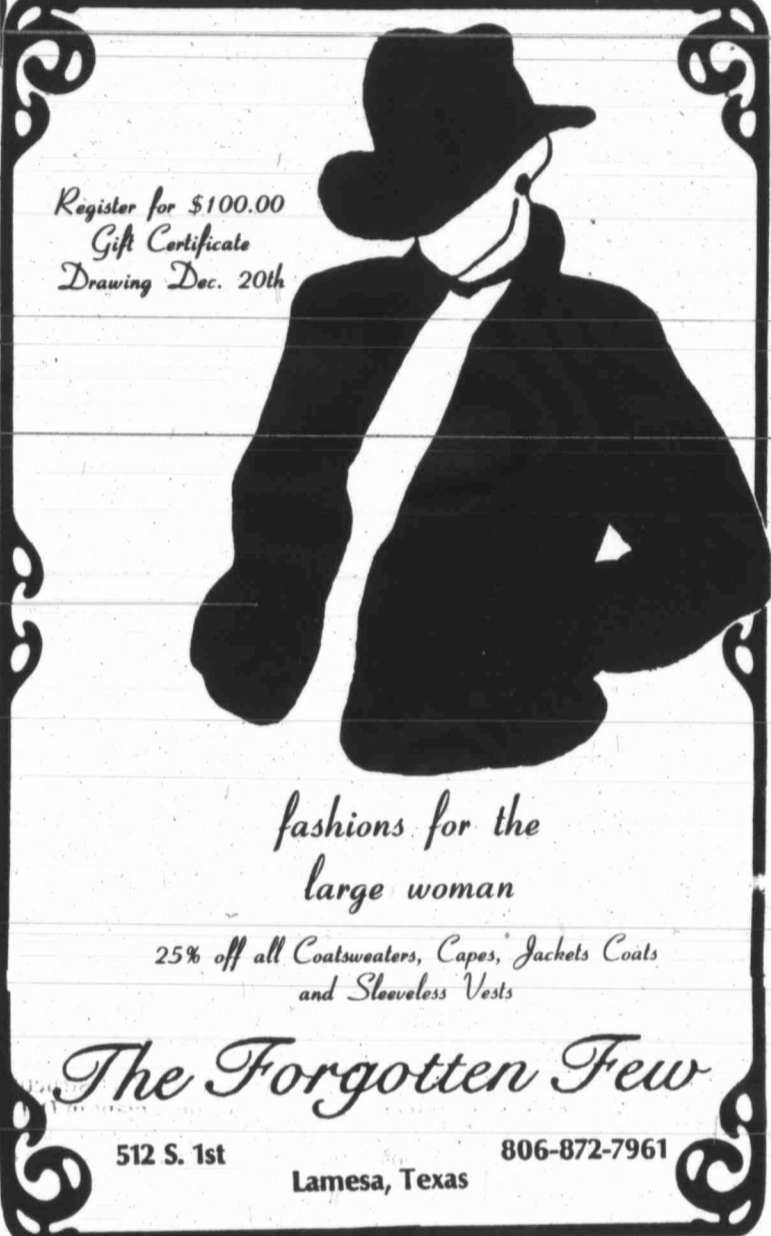 Register for $100.00
Gift Certificate
Drawing Dec. 20th
fashions for the
large woman
25% off all Coatsweaters, Capes, Jackets Coats
and Sleeveless Vests
The Forgotten Few
512 S. 1st
806-872-7961
Lamesa, Texas